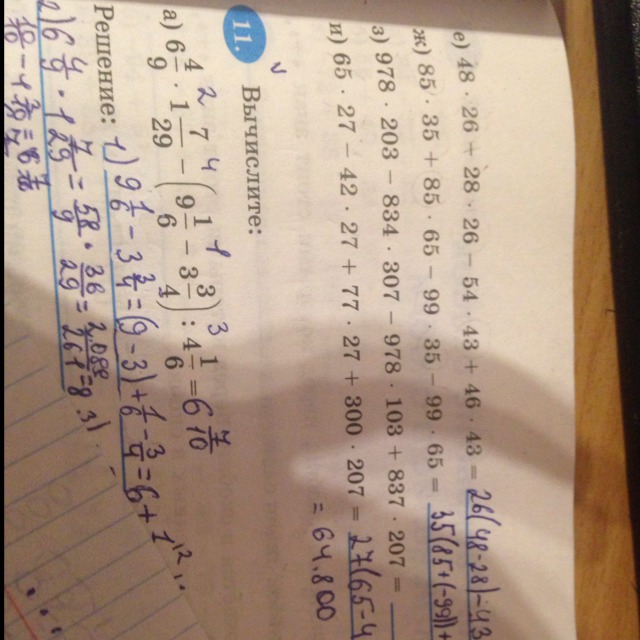 е) 48 · 26 + 28 · 26 − 54 · 43 + 46 · 43 = 26(48-28)-43
ж) 85 · 35 + 85 · 65 − 99 · 35 − 99 · 65 = 35(85+(-99))+
з) 978 · 203 − 834 · 307 − 978 · 103 + 837 · 207 =
и) 65 · 27 − 42 · 27 + 77 · 27 + 300 · 207 = 27(65-4
= 64.800
11. Вычислите:
2 4 1 3
а) 6 4/9 · 1 7/29 − (9 1/6 − 3 3/4) : 4 1/6 = 6 7/10
Решение: 1) 9 1/6 - 3 3/4 = (9-3) + 1/6 - 3/4 = 6 +
2) 6 4/9 · 1 7/29 = 58/9 · 36/29 = 2088/261 = 8 3)